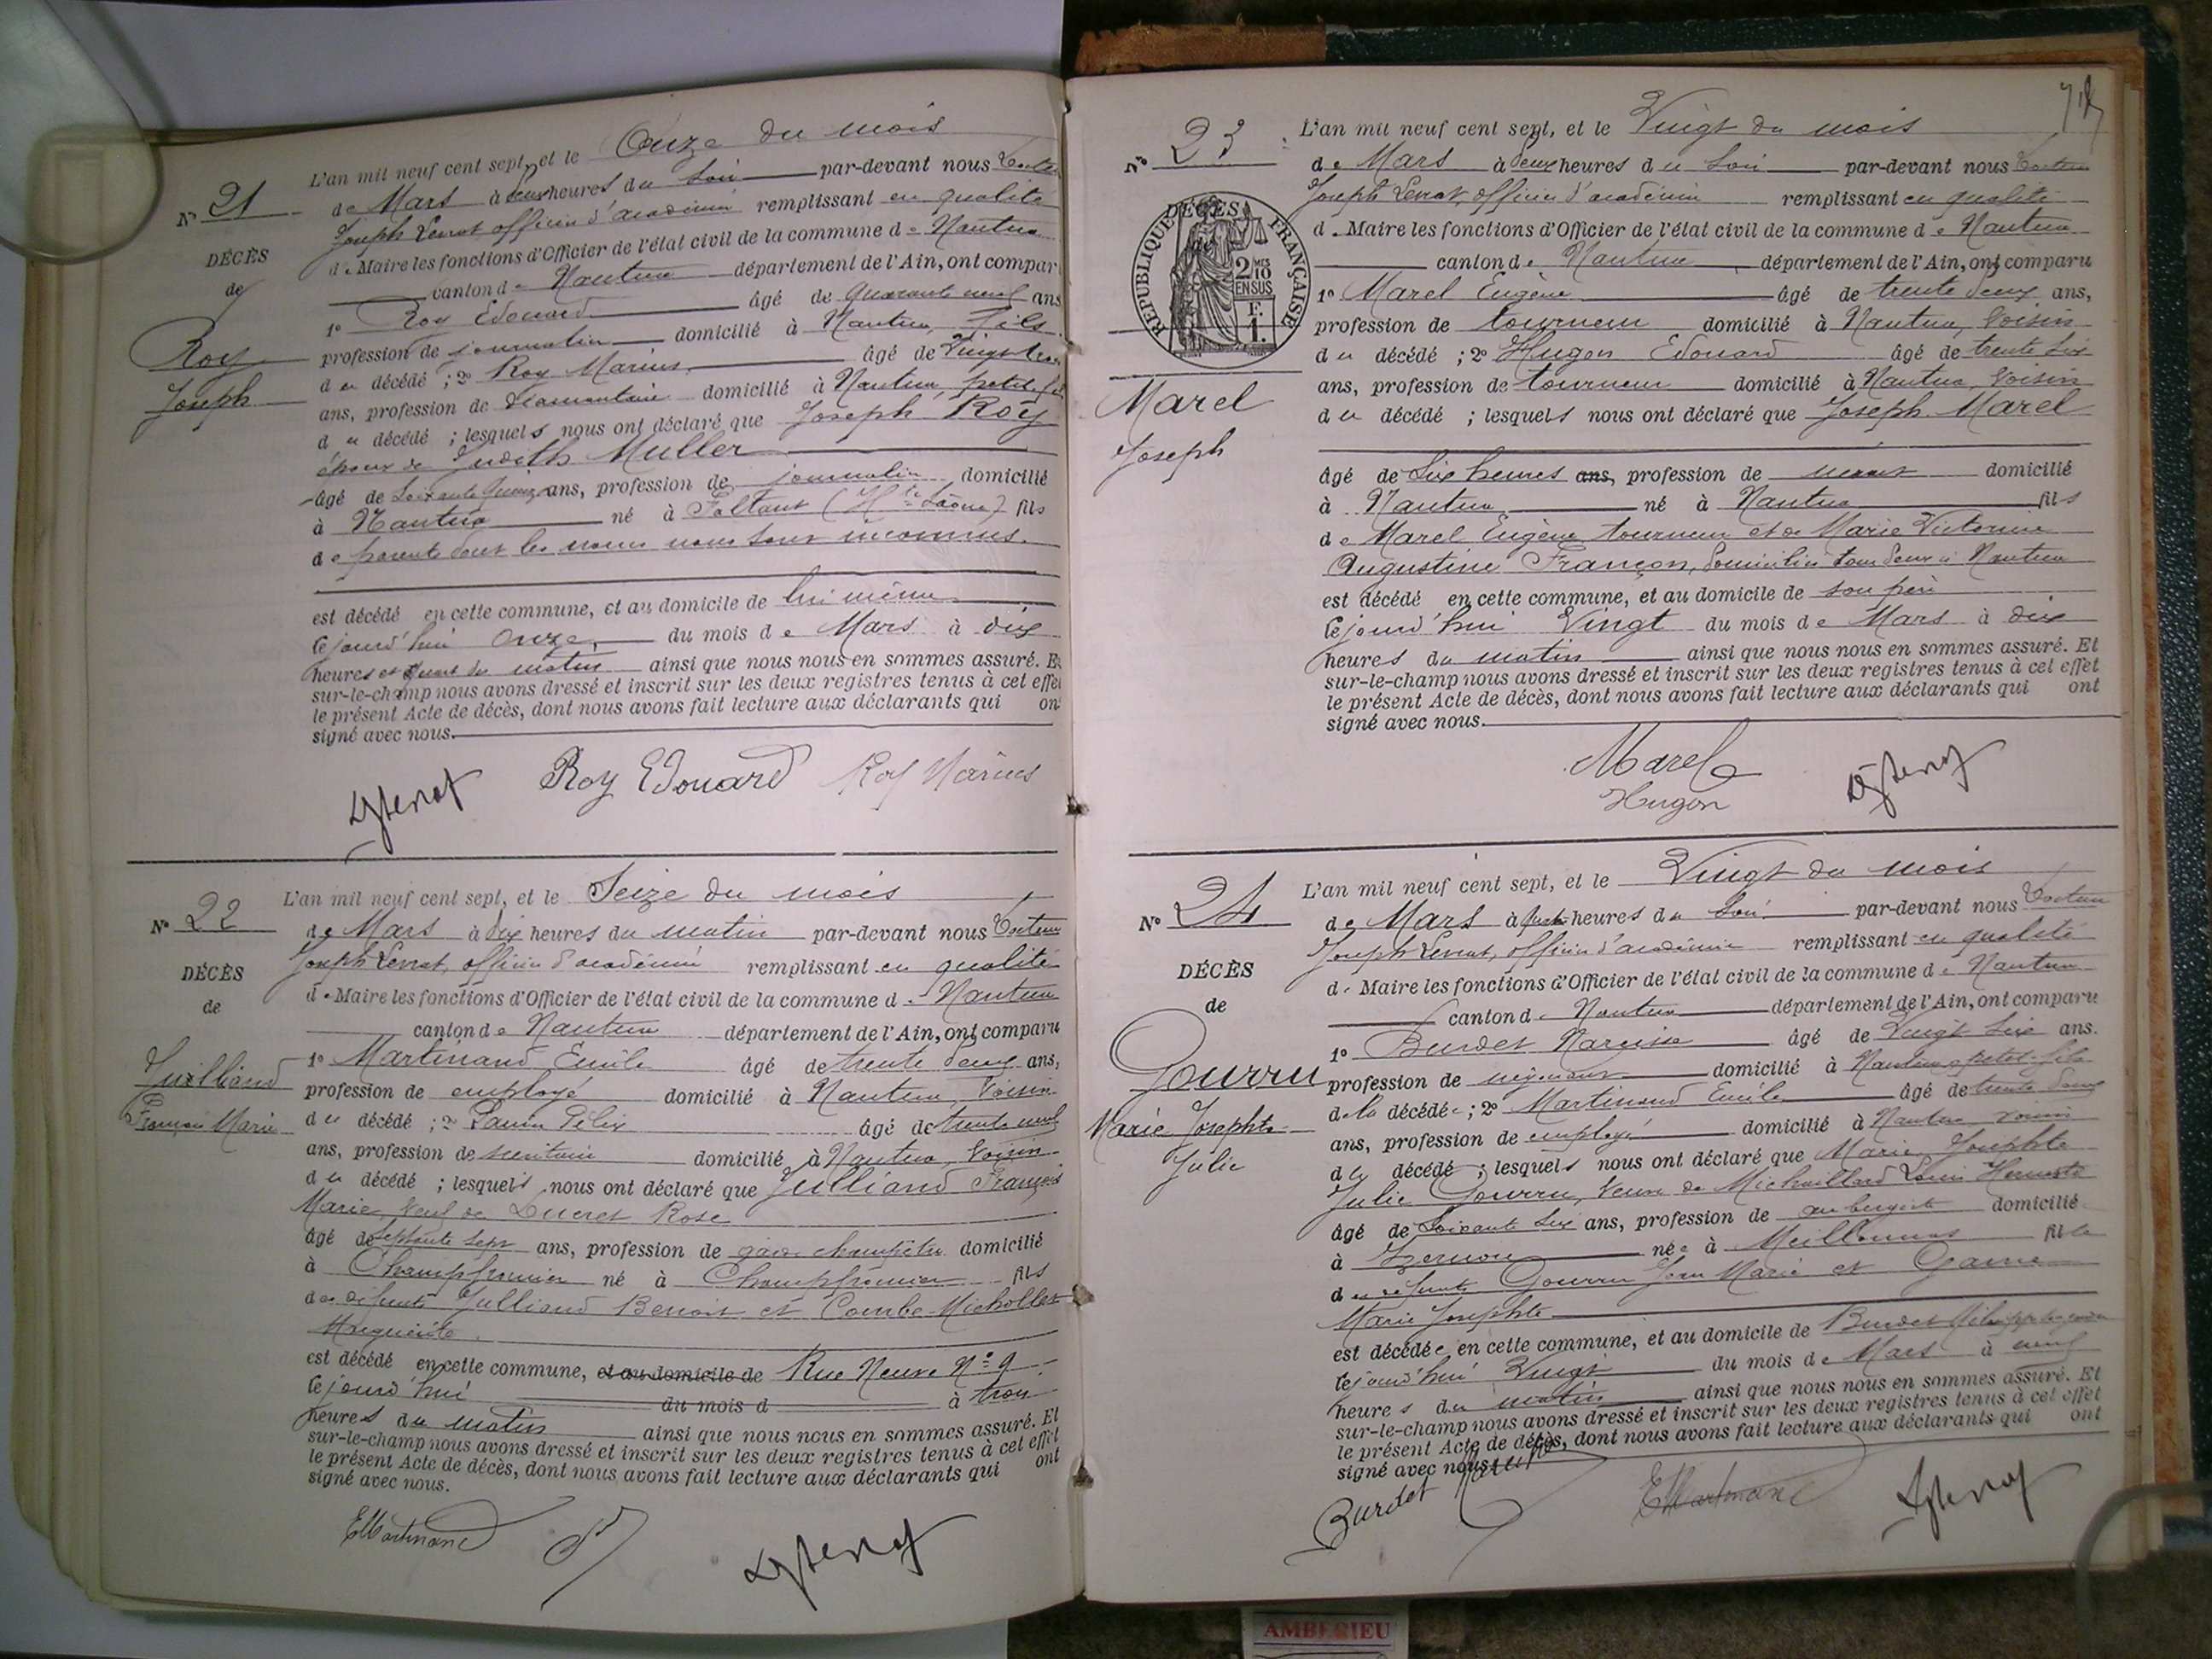 L'an mil neuf cent sept, et le Onze du mois
Nº 21
de Mars à deux heures du soir par-devant nous Docteur
Joseph Levrat officier d'académie remplissant en qualité
DÉCÈS
de
Roy
Joseph
de Maire les fonctions d'Officier de l'état civil de la commune de Nantua
canton de Nantua département de l'Ain, ont compar
1º Roy Edouard âgé de quarante neuf ans
profession de journalier domicilié à Nantua, fils
du décédé ; 2º Roy Marius âgé de vingt trois
ans, profession de diamantaire domicilié à Nantua, petit fils
du décédé ; lesquels nous ont déclaré que Joseph Roy
époux de Judith Muller
âgé de soixante quinze ans, profession de journalier domicilié
à Nantua né à (Hte Saône) fils
de parents dont les noms nous sont inconnus.
est décédé en cette commune, et au domicile de lui même
cejourd'hui onze du mois de Mars à dix
heures et quart du matin ainsi que nous nous en sommes assuré. Et
sur-le-champ nous avons dressé et inscrit sur les deux registres tenus à cet effet
le présent Acte de décès, dont nous avons fait lecture aux déclarants qui ont
signé avec nous.
Roy Edouard Roy Marius
L'an mil neuf cent sept, et le Seize du mois
Nº 22
de Mars à dix heures du matin par-devant nous Docteur
Joseph Levrat, officier d'académie remplissant en qualité
DÉCÈS
de
Julliand
François Marie
de Maire les fonctions d'Officier de l'état civil de la commune de Nantua
canton de Nantua département de l'Ain, ont comparu
1º Martinand Emile âgé de trente deux ans,
profession de employé domicilié à Nantua, voisin
du décédé ; 2º Félix âgé de trente neuf
ans, profession de domicilié à Nantua, voisin
du décédé ; lesquels nous ont déclaré que Julliand François
Marie, veuf de Ducret Rose
âgé de septante sept ans, profession de garde champêtre domicilié
à Champfromier né à Champfromier fils
de défunts Julliand Benoit et Combe-Michollet
Marguerite
est décédé en cette commune, et au domicile de Rue Neuve Nº 9
cejourd'hui du mois d à trois
heures du matin ainsi que nous nous en sommes assuré. Et
sur-le-champ nous avons dressé et inscrit sur les deux registres tenus à cet effet
le présent Acte de décès, dont nous avons fait lecture aux déclarants qui ont
signé avec nous.
EMartinand
L'an mil neuf cent sept, et le Vingt du mois
Nº 23
de Mars à deux heures du soir par-devant nous Docteur
Joseph Levrat, officier d'académie remplissant en qualité
DÉCÈS
RÉPUBLIQUE FRANÇAISE
2 MES 10 EN SUS
F. 1.
Marel
Joseph
de Maire les fonctions d'Officier de l'état civil de la commune de Nantua
canton de Nantua département de l'Ain, ont comparu
1º Marel Eugène âgé de trente deux ans,
profession de tourneur domicilié à Nantua, voisin
du décédé ; 2º Hugon Edouard âgé de trente six
ans, profession de tourneur domicilié à Nantua, voisin
du décédé ; lesquels nous ont déclaré que Joseph Marel
âgé de six heures ans, profession de néant domicilié
à Nantua né à Nantua fils
de Marel Eugène, tourneur et de Marie Victorine
Augustine Françon, domiciliés tous deux à Nantua
est décédé en cette commune, et au domicile de son père
cejourd'hui Vingt du mois de Mars à dix
heures du matin ainsi que nous nous en sommes assuré. Et
sur-le-champ nous avons dressé et inscrit sur les deux registres tenus à cet effet
le présent Acte de décès, dont nous avons fait lecture aux déclarants qui ont
signé avec nous.
Marel
Hugon
L'an mil neuf cent sept, et le Vingt du mois
Nº 24
de Mars à quatre heures du soir par-devant nous Docteur
Joseph Levrat, officier d'académie remplissant en qualité
DÉCÈS
de
Gourru
Marie Josephte
Julie
de Maire les fonctions d'Officier de l'état civil de la commune de Nantua
canton de Nantua département de l'Ain, ont comparu
1º Burdet Narcisse âgé de vingt six ans.
profession de négociant domicilié à Nantua petit-fils
de la décédée ; 2º Martinand Emile âgé de trente deux
ans, profession de employé domicilié à Nantua voisin
de la décédée ; lesquels nous ont déclaré que Marie Josephte
Julie Gourru, veuve de Michaillard Louis
âgé de soixante six ans, profession de aubergiste domicilié
à Izernore née à Meillonnas fille
de défunts Gourru Jean Marie et
Marie Josephte
est décédée en cette commune, et au domicile de Burdet
cejourd'hui Vingt du mois de Mars à neuf
heures du matin ainsi que nous nous en sommes assuré. Et
sur-le-champ nous avons dressé et inscrit sur les deux registres tenus à cet effet
le présent Acte de décès, dont nous avons fait lecture aux déclarants qui ont
signé avec nous.
Burdet Narcisse EMartinand
AMBERIEU